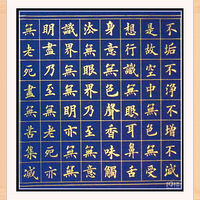 不垢不淨不增不減
是故空中無色無受
想行識無眼耳鼻舌
身意無色聲香味觸
法無眼界乃至無意
識界無無明亦無無
明盡乃至無老死亦
無老死盡無苦集滅